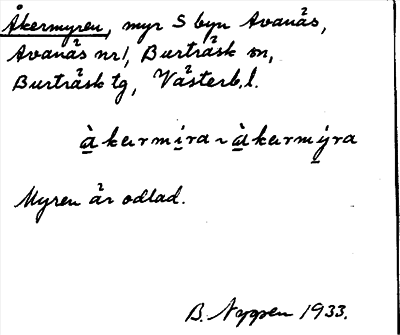 Åkermyren, myr S byn Avanäs,
Avanäs nr 1, Burträsk sn,
Burträsk tg, Västerb. l.
à̱kermi̱ra ~ à̱kermy̱ra
Myren är odlad.
B. Nygren 1933.